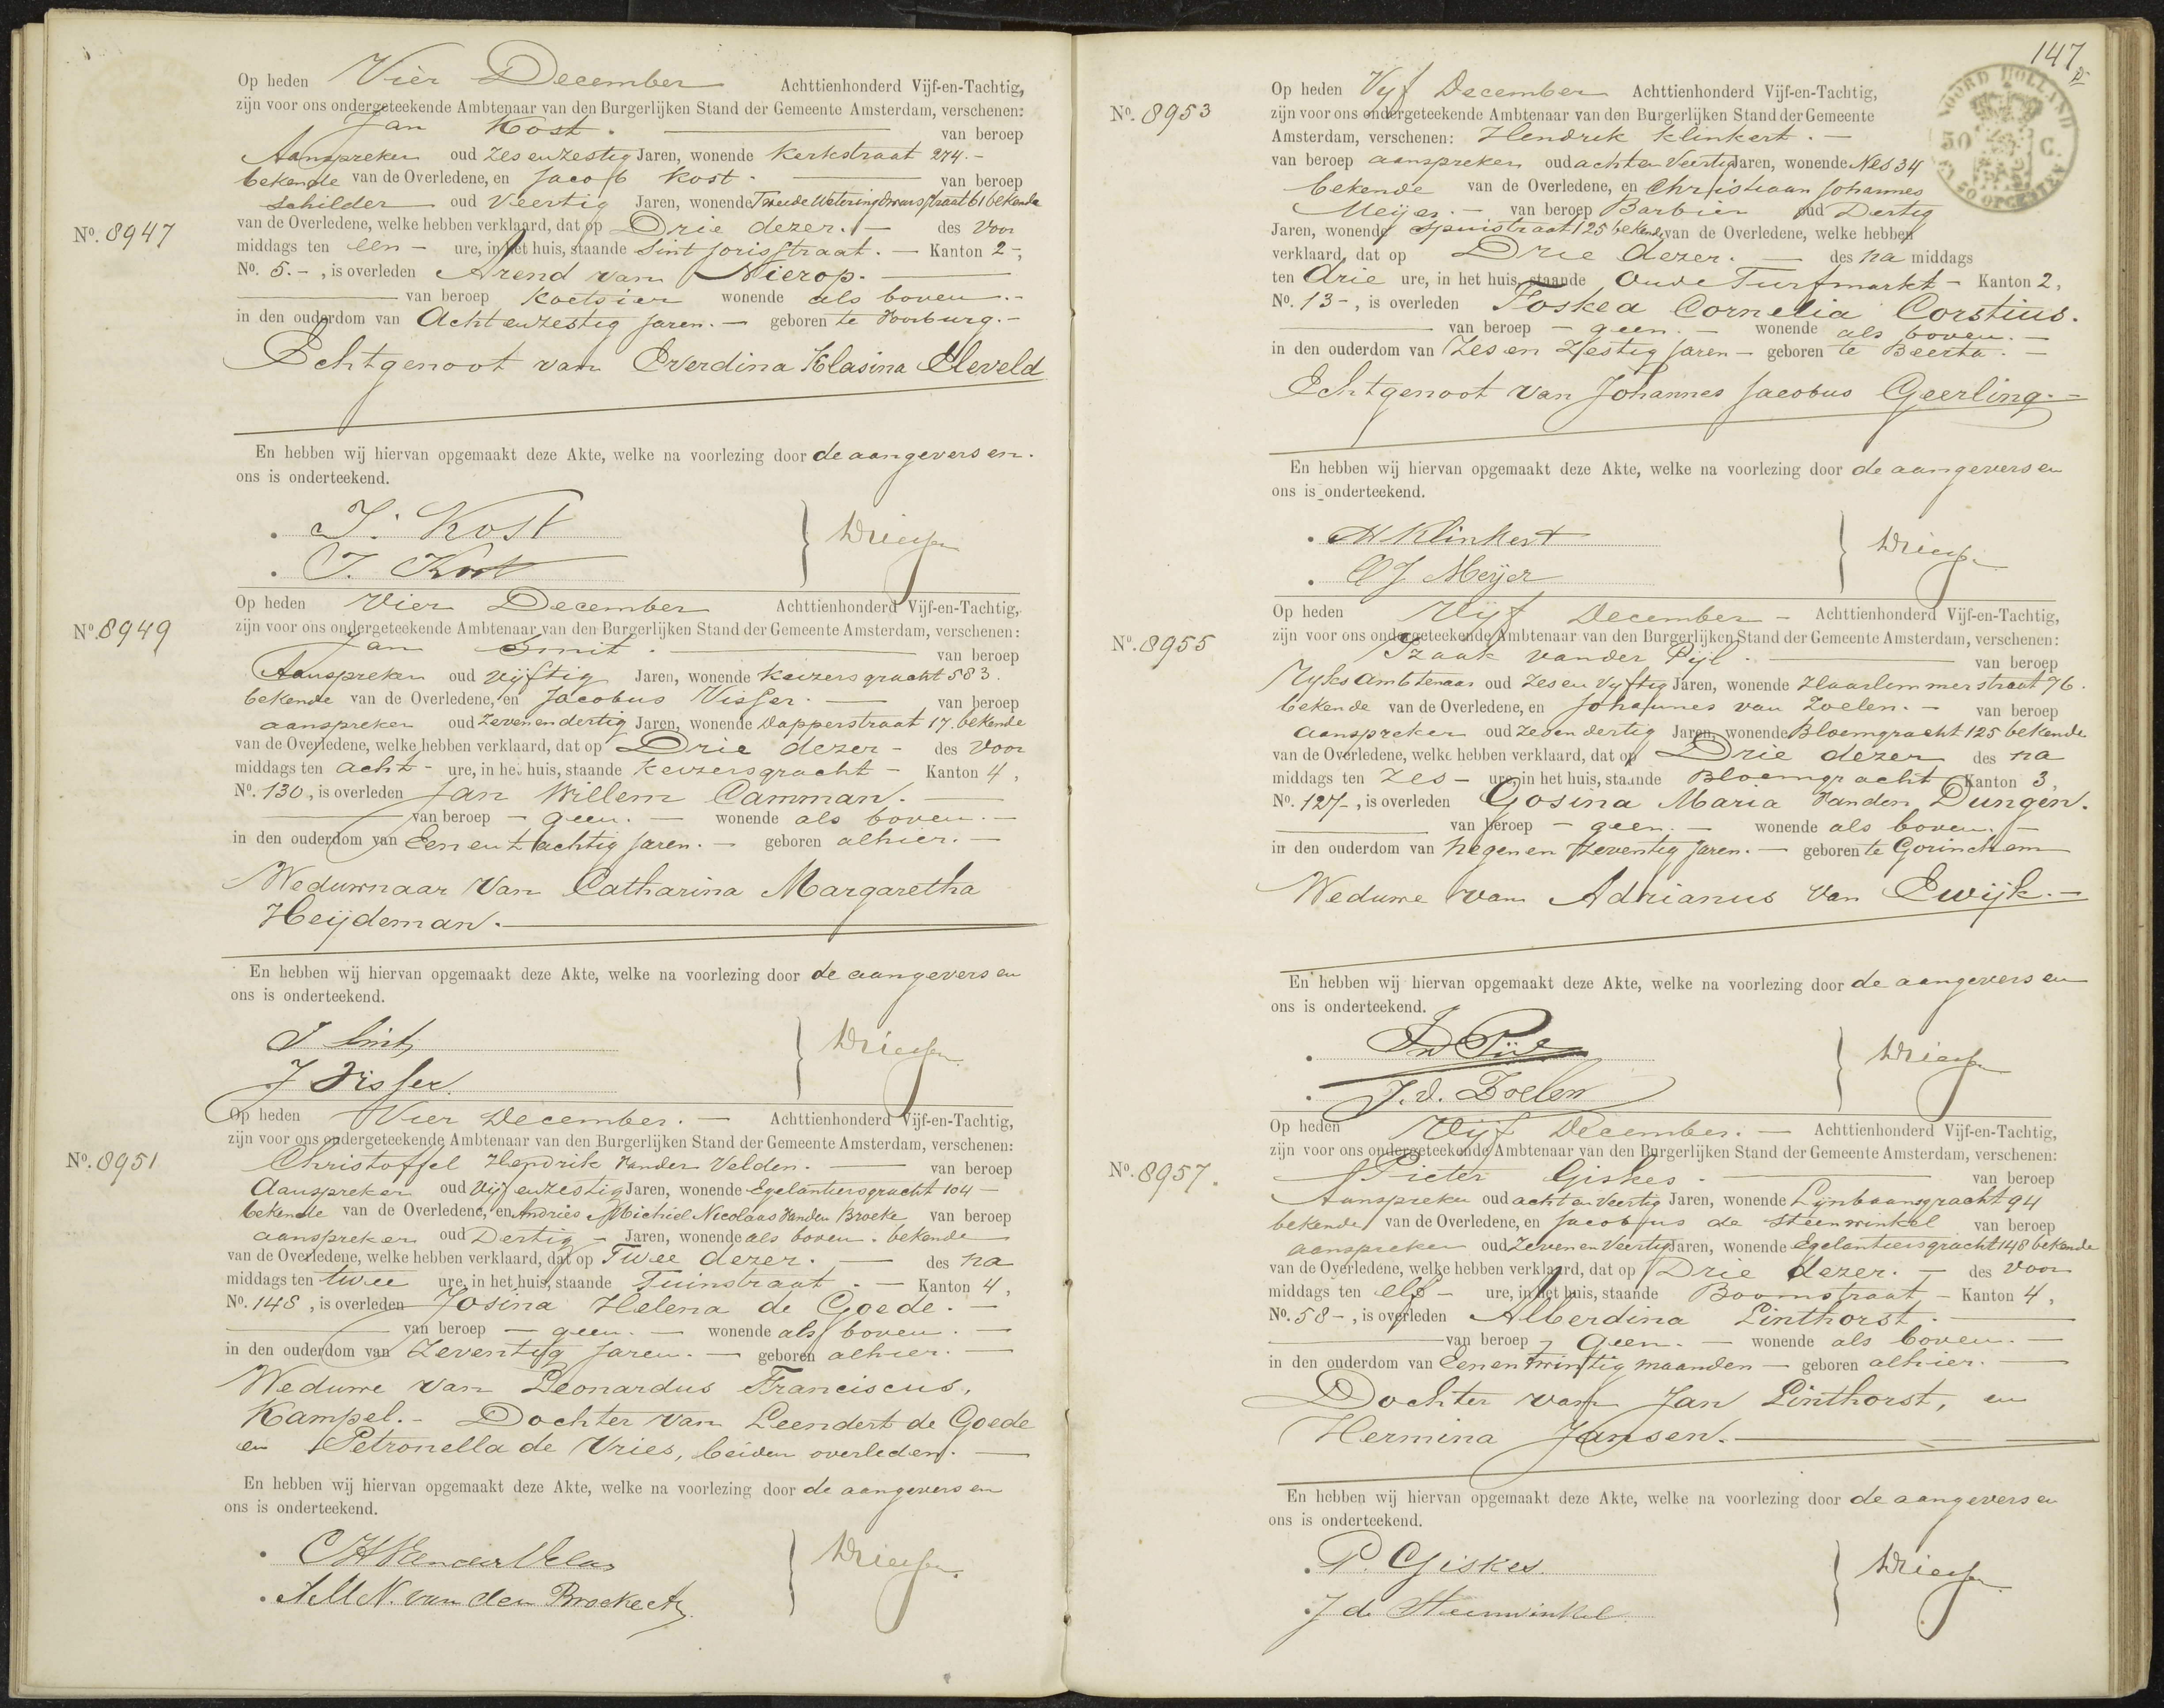 Op heden Vier December Achttienhonderd Vijf-en-Tachtig,
zijn voor ons ondergeteekende Ambtenaar van den Burgerlijken Stand der Gemeente Amsterdam, verschenen:
Jan Kost. van beroep
Aanspreker oud Zes en zestig Jaren, wonende Kerkstraat 274. -
bekende van de Overledene, en Jacob Kost - van beroep
Schilder oud Veertig Jaren, wonende Tweede Weteringdwarsstraat 61 bekende
No. 8947
van de Overledene, welke hebben verklaard, dat op Drie dezer. - des voor
middags ten een - ure, in het huis, staande Sint Jorisstraat. - Kanton 2-,
No. 5. -, is overleden Arend van Nierop. -
van beroep Koetsier wonende als boven. -
in den ouderdom van Acht en zestig jaren. - geboren te Voorburg. -
Echtgenoot van Everdina Klasina Eleveld
En hebben wij hiervan opgemaakt deze Akte, welke na voorlezing door de aangevers en.
ons is onderteekend.
J. Kost
J. Kost
Op heden Vier December Achttienhonderd Vijf-en-Tachtig,
No. 8949
zijn voor ons ondergeteekende Ambtenaar van den Burgerlijken Stand der Gemeente Amsterdam, verschenen:
Jan Smit. van beroep
Aanspreker oud vijftig Jaren, wonende Keizersgracht 583.
bekende van de Overledene, en Jacobus Visser. - van beroep
aanspreker oud Zeven en dertig Jaren, wonende Dapperstraat 17. bekende
van de Overledene, welke hebben verklaard, dat op Drie dezer - des voor
middags ten acht - ure, in het huis, staande Keizersgracht - Kanton 4,
No. 130, is overleden Jan Willem Camman. -
van beroep - geen. - wonende als boven. -
in den ouderdom van Een en tachtig jaren. - geboren alhier. -
Weduwnaar van Catharina Margaretha
Heijdeman. -
En hebben wij hiervan opgemaakt deze Akte, welke na voorlezing door de aangevers en
ons is onderteekend.
J Smit
J Visser
Op heden Vier December. - Achttienhonderd Vijf-en-Tachtig,
zijn voor ons ondergeteekende Ambtenaar van den Burgerlijken Stand der Gemeente Amsterdam, verschenen:
No. 8951
Christoffel Hendrik vander Velden. - van beroep
Aanspreker oud Vijf en zestig Jaren, wonende Egelantiersgracht 104 -
bekende van de Overledene, en Andries Michiel Nicolaas vanden Broeke van beroep
aanspreker oud Dertig - Jaren, wonende als boven. bekende
van de Overledene, welke hebben verklaard, dat op Twee dezer. - des na
middags ten twee ure, in het huis, staande Tuinstraat. - Kanton 4,
No. 148, is overleden Josina Helena de Goede. -
van beroep - geen. - wonende als boven. -
in den ouderdom van Zeventig jaren. - geboren alhier. -
Weduwe van Leonardus Franciscus,
Kampel. - Dochter van Leendert de Goede
en Petronella de Vries, beiden overleden. -
En hebben wij hiervan opgemaakt deze Akte, welke na voorlezing door de aangevers en
ons is onderteekend.
CH van der Velden
A.M.N. van den Broeke
147
NOORD HOLLAND
50 C.
Op heden Vyf December Achttienhonderd Vijf-en-Tachtig,
No. 8953
zijn voor ons ondergeteekende Ambtenaar van den Burgerlijken Stand der Gemeente
Amsterdam, verschenen: Hendrik Klinkert. -
van beroep aanspreker oud acht en Veertig Jaren, wonende Nes 34
bekende van de Overledene, en Christiaan Johannes
Meijer. - van beroep Barbier oud Dertig
Jaren, wonende Spuistraat 125 bekende van de Overledene, welke hebben
verklaard, dat op Drie dezer. - des na middags
ten drie ure, in het huis, staande Oude Turfmarkt - Kanton 2,
No. 13 -, is overleden Foskea Cornelia Corstius.
van beroep - geen. - wonende als boven. -
in den ouderdom van Zes en Zestig jaren - geboren te Beerta. -
Echtgenoot van Johannes Jacobus Geerling. -
En hebben wij hiervan opgemaakt deze Akte, welke na voorlezing door de aangevers en
ons is onderteekend.
H Klinkert
CJ Meijer
Op heden Vijf December - Achttienhonderd Vijf-en-Tachtig,
zijn voor ons ondergeteekende Ambtenaar van den Burgerlijken Stand der Gemeente Amsterdam, verschenen:
No. 8955
Izaak vander Pijl. van beroep
Ryks ambtenaar oud Zes en vyftig Jaren, wonende Haarlemmerstraat 76.
bekende van de Overledene, en Johannes van Zoelen. - van beroep
aanspreker oud Zes en dertig Jaren, wonende Bloemgracht 125 bekende
van de Overledene, welke hebben verklaard, dat op Drie dezer des na
middags ten zes - ure, in het huis, staande Bloemgracht Kanton 3,
No. 127 -, is overleden Gosina Maria vanden Dungen.
van beroep - geen. - wonende als boven. -
in den ouderdom van Negen en Zeventig jaren. - geboren te Gorinchem
Weduwe van Adrianus van Ewijk. -
En hebben wij hiervan opgemaakt deze Akte, welke na voorlezing door de aangevers en
ons is onderteekend.
J. v. Zoelen
Op heden Vijf December. - Achttienhonderd Vijf-en-Tachtig,
zijn voor ons ondergeteekende Ambtenaar van den Burgerlijken Stand der Gemeente Amsterdam, verschenen:
No. 8957.
Pieter Giskes. van beroep
Aanspreker oud acht en Veertig Jaren, wonende Lijnbaansgracht 94
bekende van de Overledene, en Jacobus de Steenwinkel van beroep
aanspreker oud Zeven en Veertig Jaren, wonende Egelantiersgracht 148 bekende
van de Overledene, welke hebben verklaard, dat op Drie dezer. - des voor
middags ten elf - ure, in het huis, staande Boomstraat - Kanton 4,
No. 58 -, is overleden Alberdina Linthorst. -
van beroep - geen. - wonende als boven. -
in den ouderdom van Een en twintig maanden - geboren alhier. -
Dochter van Jan Linthorst, en
Hermina Jansen. -
En hebben wij hiervan opgemaakt deze Akte, welke na voorlezing door de aangevers en
ons is onderteekend.
P. Giskes.
J de Steenwinkel